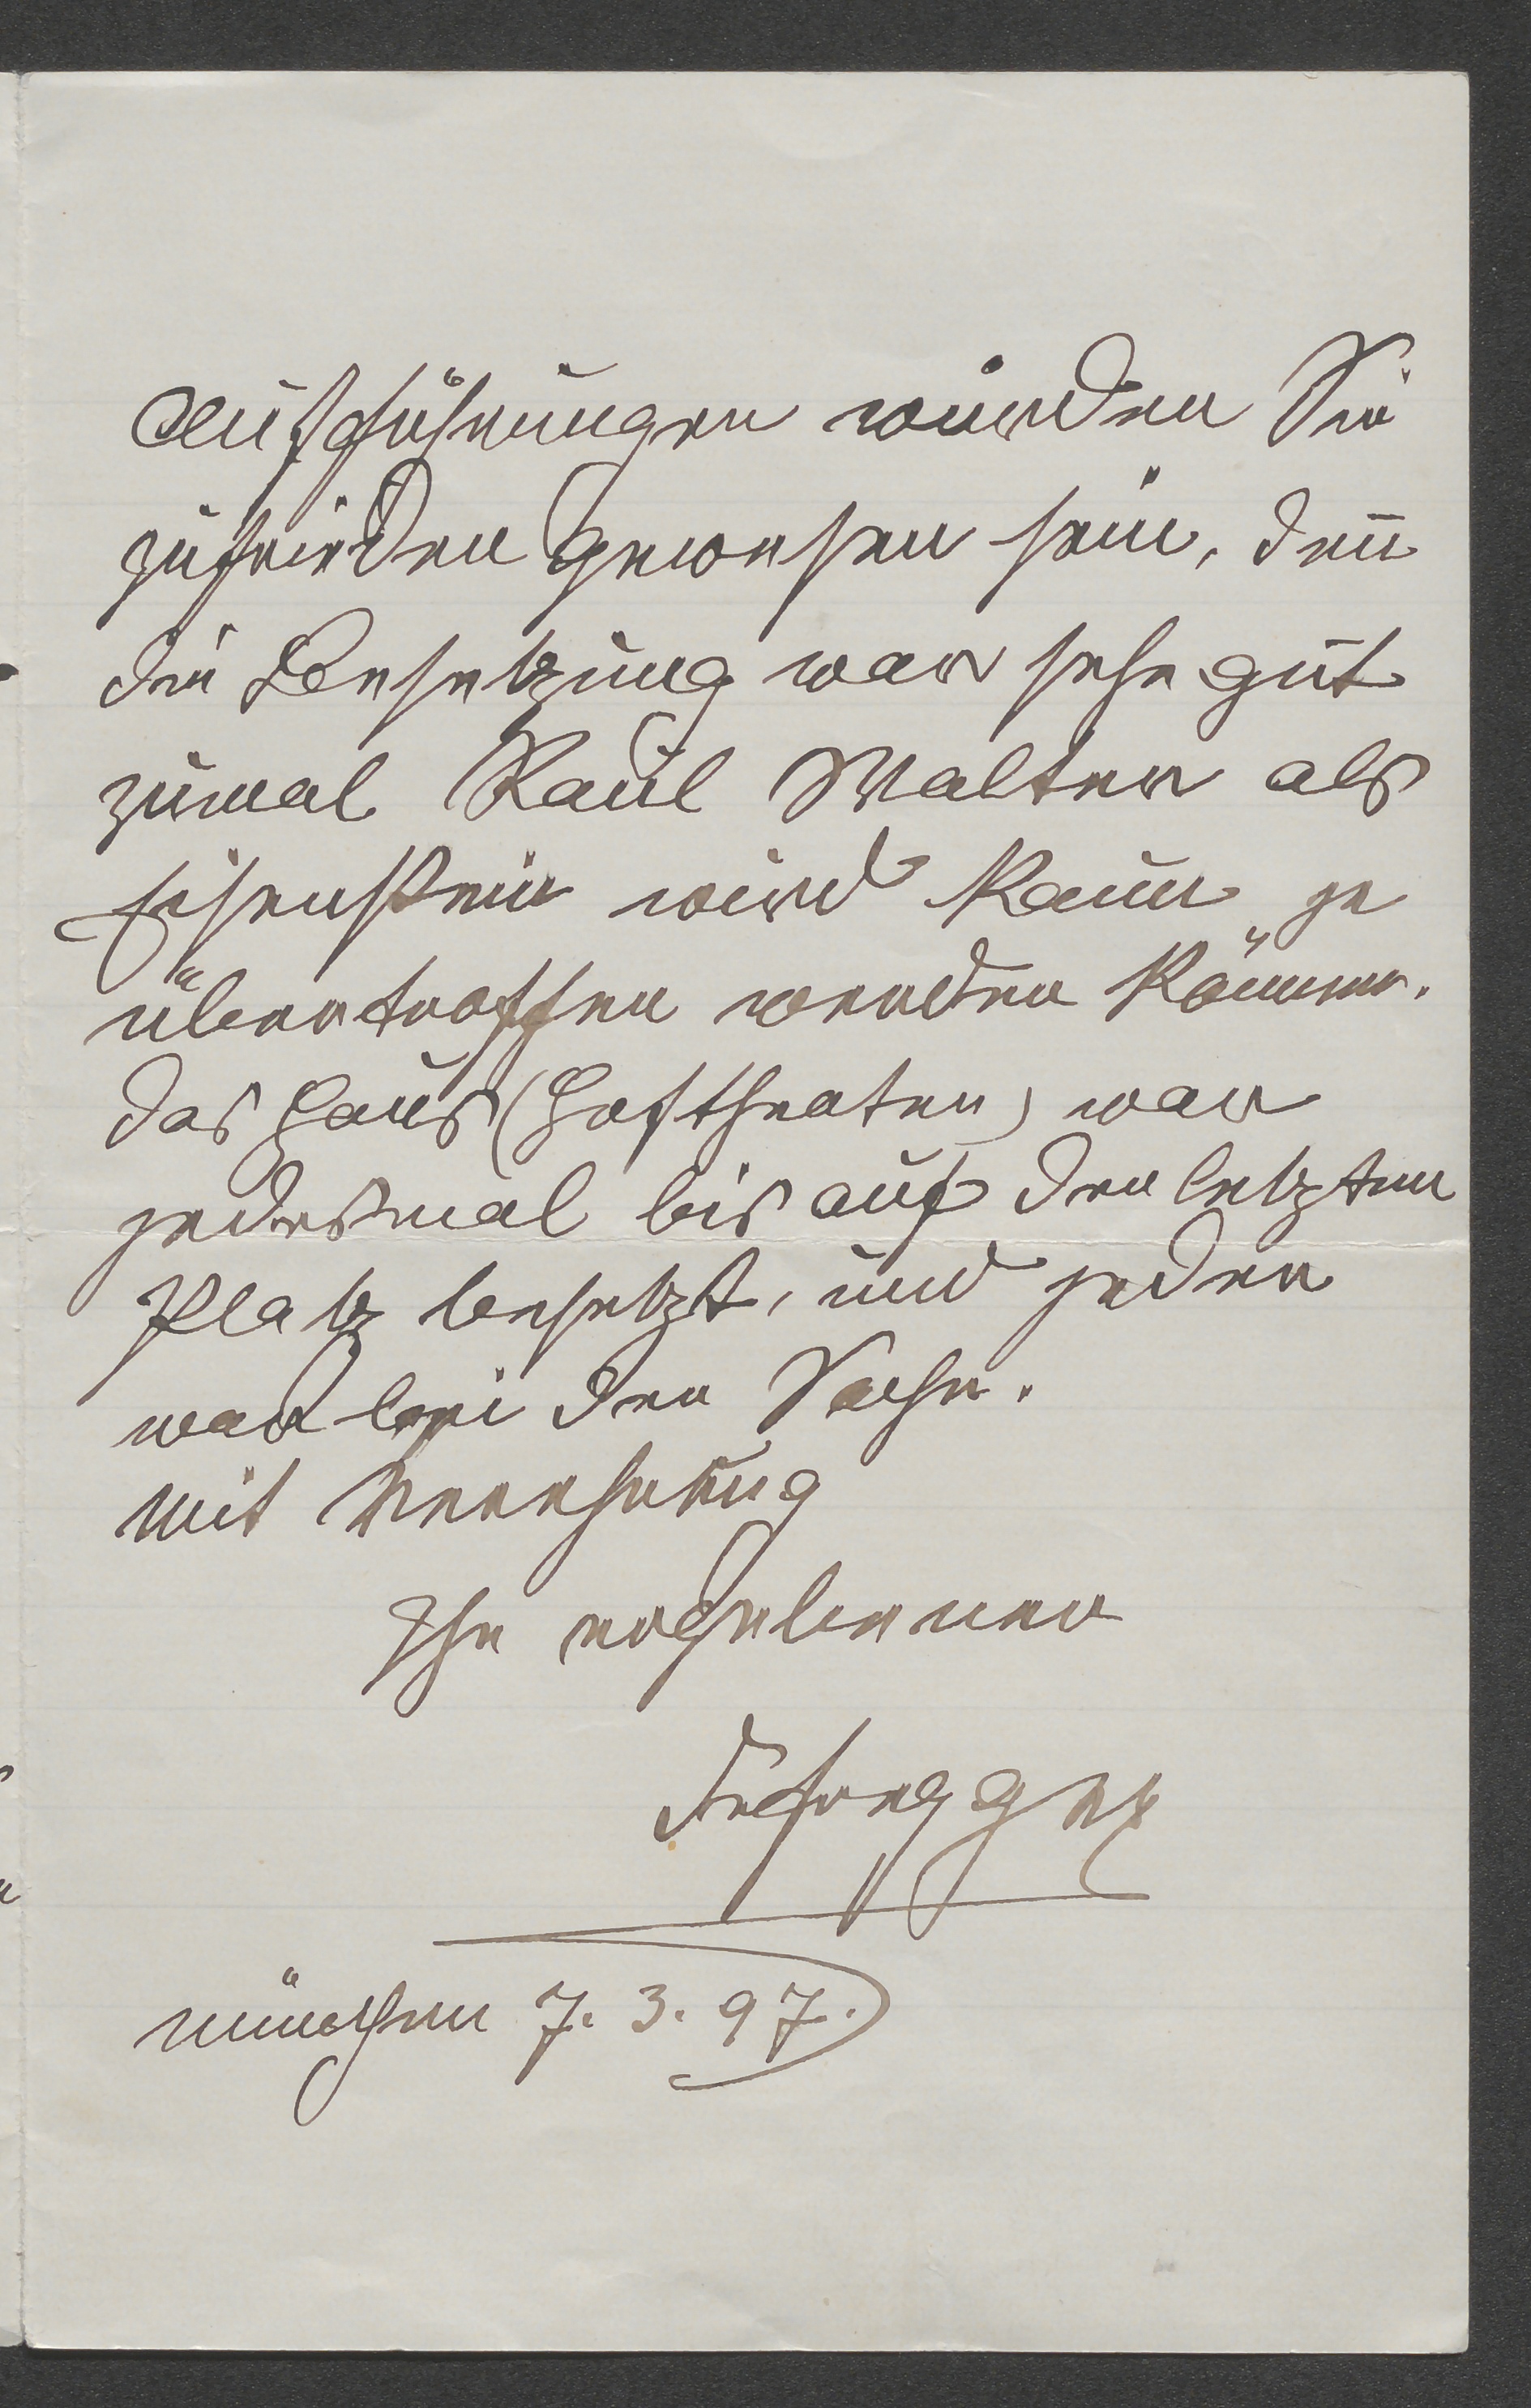 Aufführungen würden Sie
zufrieden gewesen sein, den̄
die Besetzung war sehr gut
zumal Raul Walter als
Eisenstein wird kaum je
übertroffen werden können.
das Haus (Hoftheater) war
jedesmal bis auf den letzten
Platz besetzt, und jeder
war bei der Sache.
Mit Verehrung
Ihr ergebener
Defregger
München 7. 3. 97.